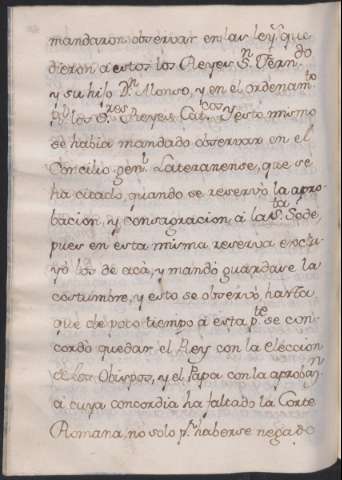 mandaron observar en las leyˢ que
dieron a estos los Reyes Sⁿ Fernᵈᵒ
y su hijo Dⁿ Alonso, y en el ordenamᵗᵒ
los Sʳᵉˢ Reyes Catᶜᵒˢ y esto mismo
se habia mandado observar en el
Concilio genˡ Lateranense, que se
ha citado, quando se reservò la apro-
bacion, y consagracion a la Sᵗᵃ Sede,
pues en esta misma reserva exclu-
yò los de acà, y mandò guardase la
costumbre, y esto se observò, hasta
que de poco tiempo a esta pᵗᵉ se con-
cordò quedar el Rey con la eleccion
de los Obispos, y el Papa con la aprobaⁿ
a cuya concordia ha faltado la Corte
Romana, no solo pʳ haberse negado